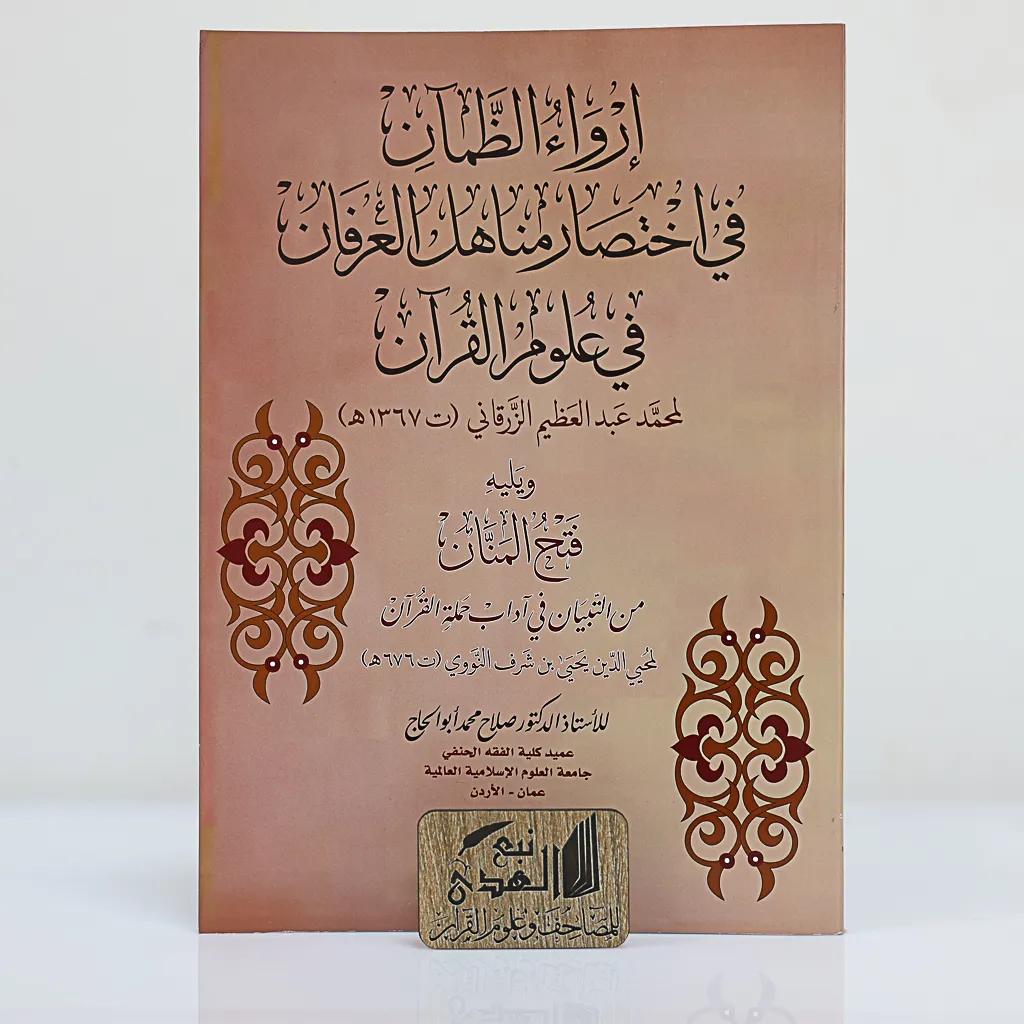 إِرْوَاءُ الظَّمْآنِ
فِي اخْتِصَارِ مَنَاهِلِ الْعِرْفَانِ
فِي عُلُومِ الْقُرْآنِ
لمحمَّد عَبد العَظيم الزَّرقاني (ت ١٣٦٧هـ)
ويَليهِ
فَتْحُ المَنَّان
من التِّبيَان في آداب حَملةِ القُرآن
لمُحيي الدِّين يَحيَى بن شَرف النَّووي (ت ٦٧٦هـ)
للأستاذ الدكتور صلاح محمد أبو الحاج
عميد كلية الفقه الحنفي
جامعة العلوم الإسلامية العالمية
عمان - الأردن
نبع
الهدى
للمصاحف وعلوم القرآن